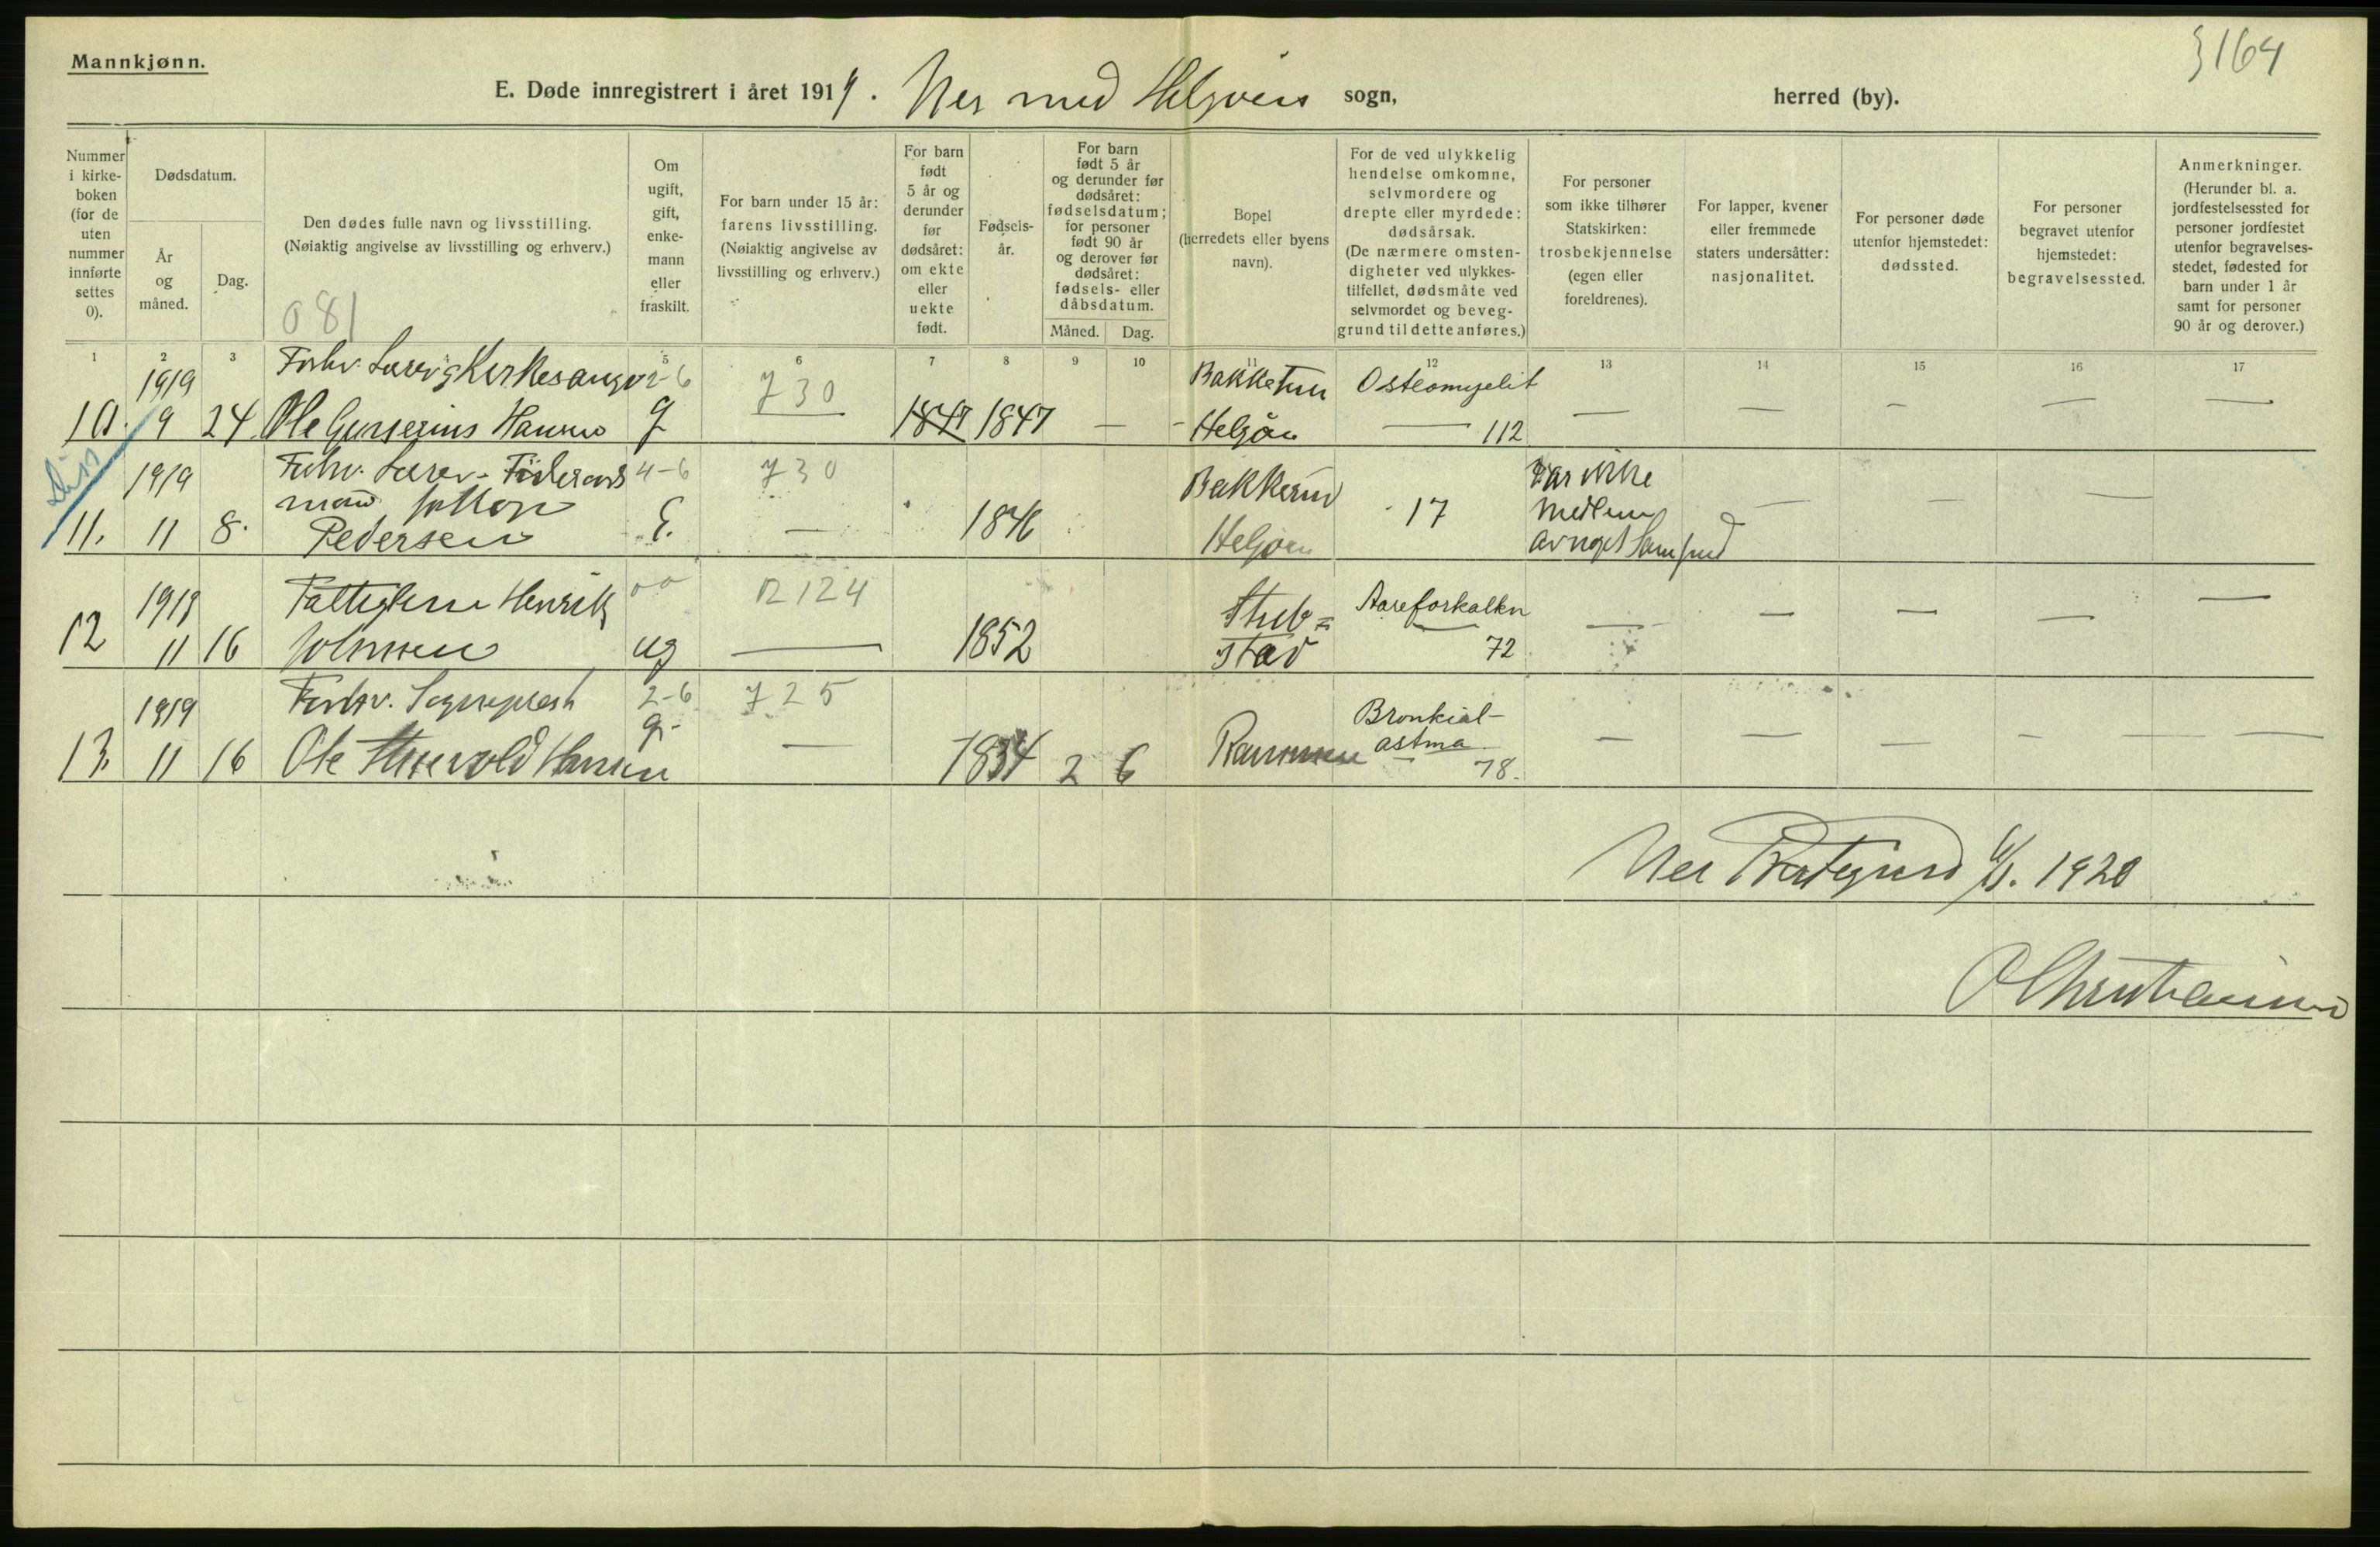 Mannkjønn.
3164
E. Døde innregistrert i året 1919. Nes med Helgøens sogn, herred (by).
Nummer
i kirke-
boken
(for de
uten
nummer
innførte
settes
0).
Dødsdatum.
År
og
måned.
Dag.
Den dødes fulle navn og livsstilling.
(Nøiaktig angivelse av livsstilling og erhverv.)
081
Om
ugift,
gift,
enke-
mann
eller
fraskilt.
For barn under 15 år:
farens livsstilling.
(Nøiaktig angivelse av
livsstilling og erhverv.)
For barn
født
5 år og
derunder
før
dødsåret:
om ekte
eller
uekte
født.
Fødsels-
år.
For barn
født 5 år
og derunder før
dødsåret:
fødselsdatum;
for personer
født 90 år
og derover før
dødsåret:
fødsels- eller
dåbsdatum.
Måned. Dag.
Bopel
(herredets eller byens
navn).
For de ved ulykkelig
hendelse omkomne,
selvmordere og
drepte eller myrdede:
dødsårsak.
(De nærmere omsten-
digheter ved ulykkes-
tilfellet, dødsmåte ved
selvmordet og beveg-
grund til dette anføres.)
For personer
som ikke tilhører
Statskirken:
trosbekjennelse
(egen eller
foreldrenes).
For lapper, kvener
eller fremmede
staters undersåtter:
nasjonalitet.
For personer døde
utenfor hjemstedet:
dødssted.
For personer
begravet utenfor
hjemstedet:
begravelsessted.
Anmerkninger.
(Herunder bl. a.
jordfestelsessted for
personer jordfestet
utenfor begravelses-
stedet, fødested for
barn under 1 år
samt for personer
90 år og derover.)
1 2 3 5 6 7 8 9 10 11 12 13 14 15 16 17
1919 Forhv. Lærer og Kirkesanger 2-6 730 Bakketun Osteomyelit
10. 9 24. Ole Hansen g 1847 1847 — Helgøen — 112 — — — — —
1919 Forhv. Lærer - Føderaads 4-6 730 Bakkerud Var ikke
mand 17 Medlem — — —
11. 11 8. Pedersen E. — 1846 Helgøen av noget Samfund
1919 Fattiglem Henrik 00 R124 Stub= Aareforkalkn — — — — —
12 11 16 Johnsen ug — 1852 stad 72
1919 Forhv. Sogneprest 2-6 725 Bronkial-
13. 11 16 Ole Hansen g. — 1834 2 6 astma 78. — — — — —
Nes Prestegaard 6/1. 1920
O Christiansen